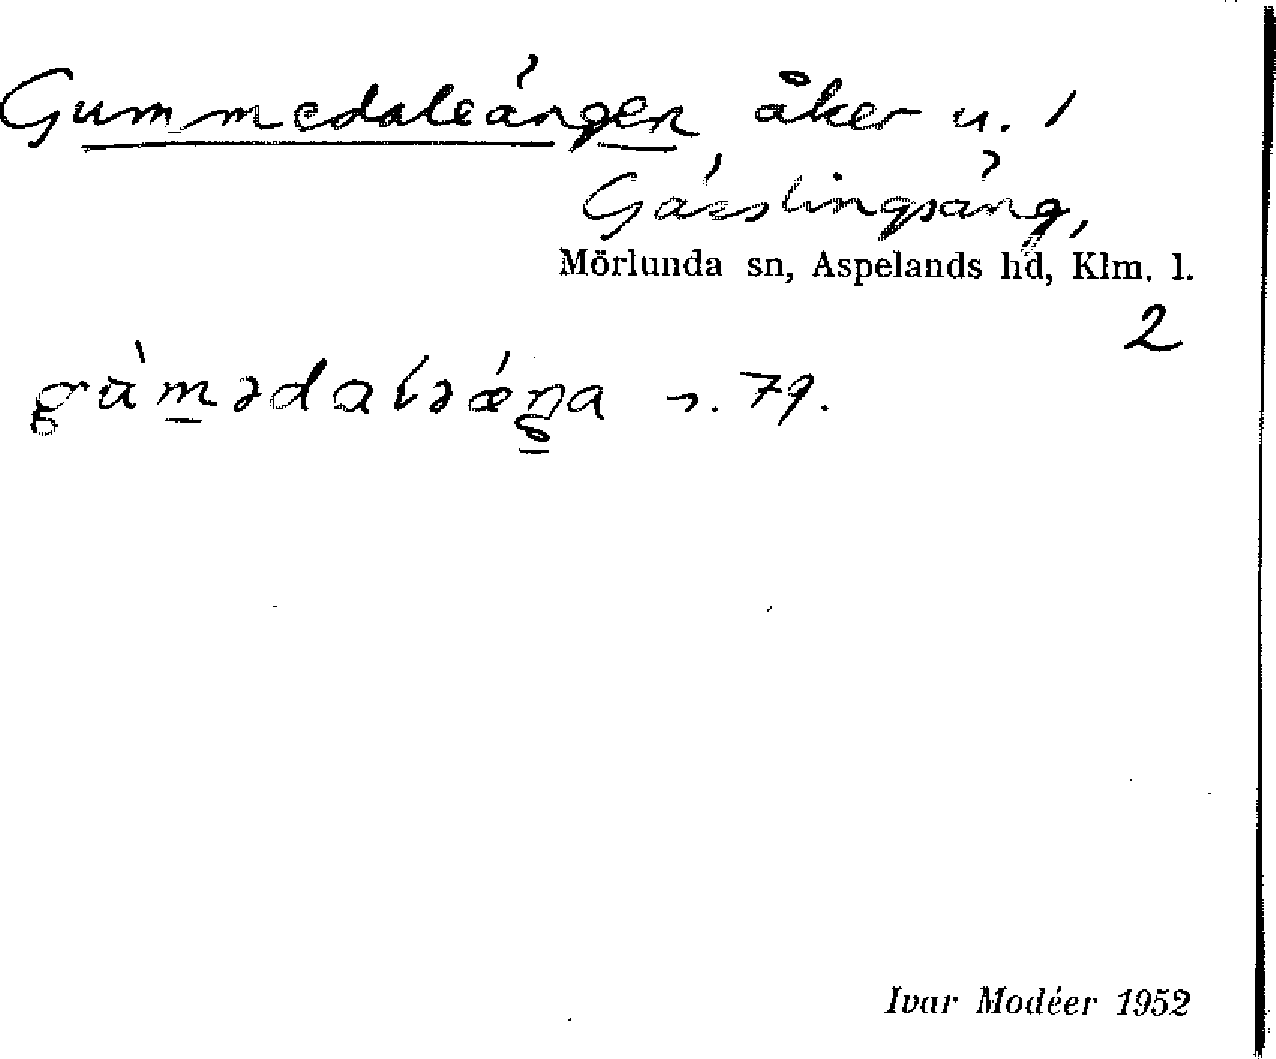 Gummedaleängen åker u. 1
Gässlingsäng,
Mörlunda sn, Aspelands hd, Klm. l.
2
s. 79.
Ivar Modéer 1952